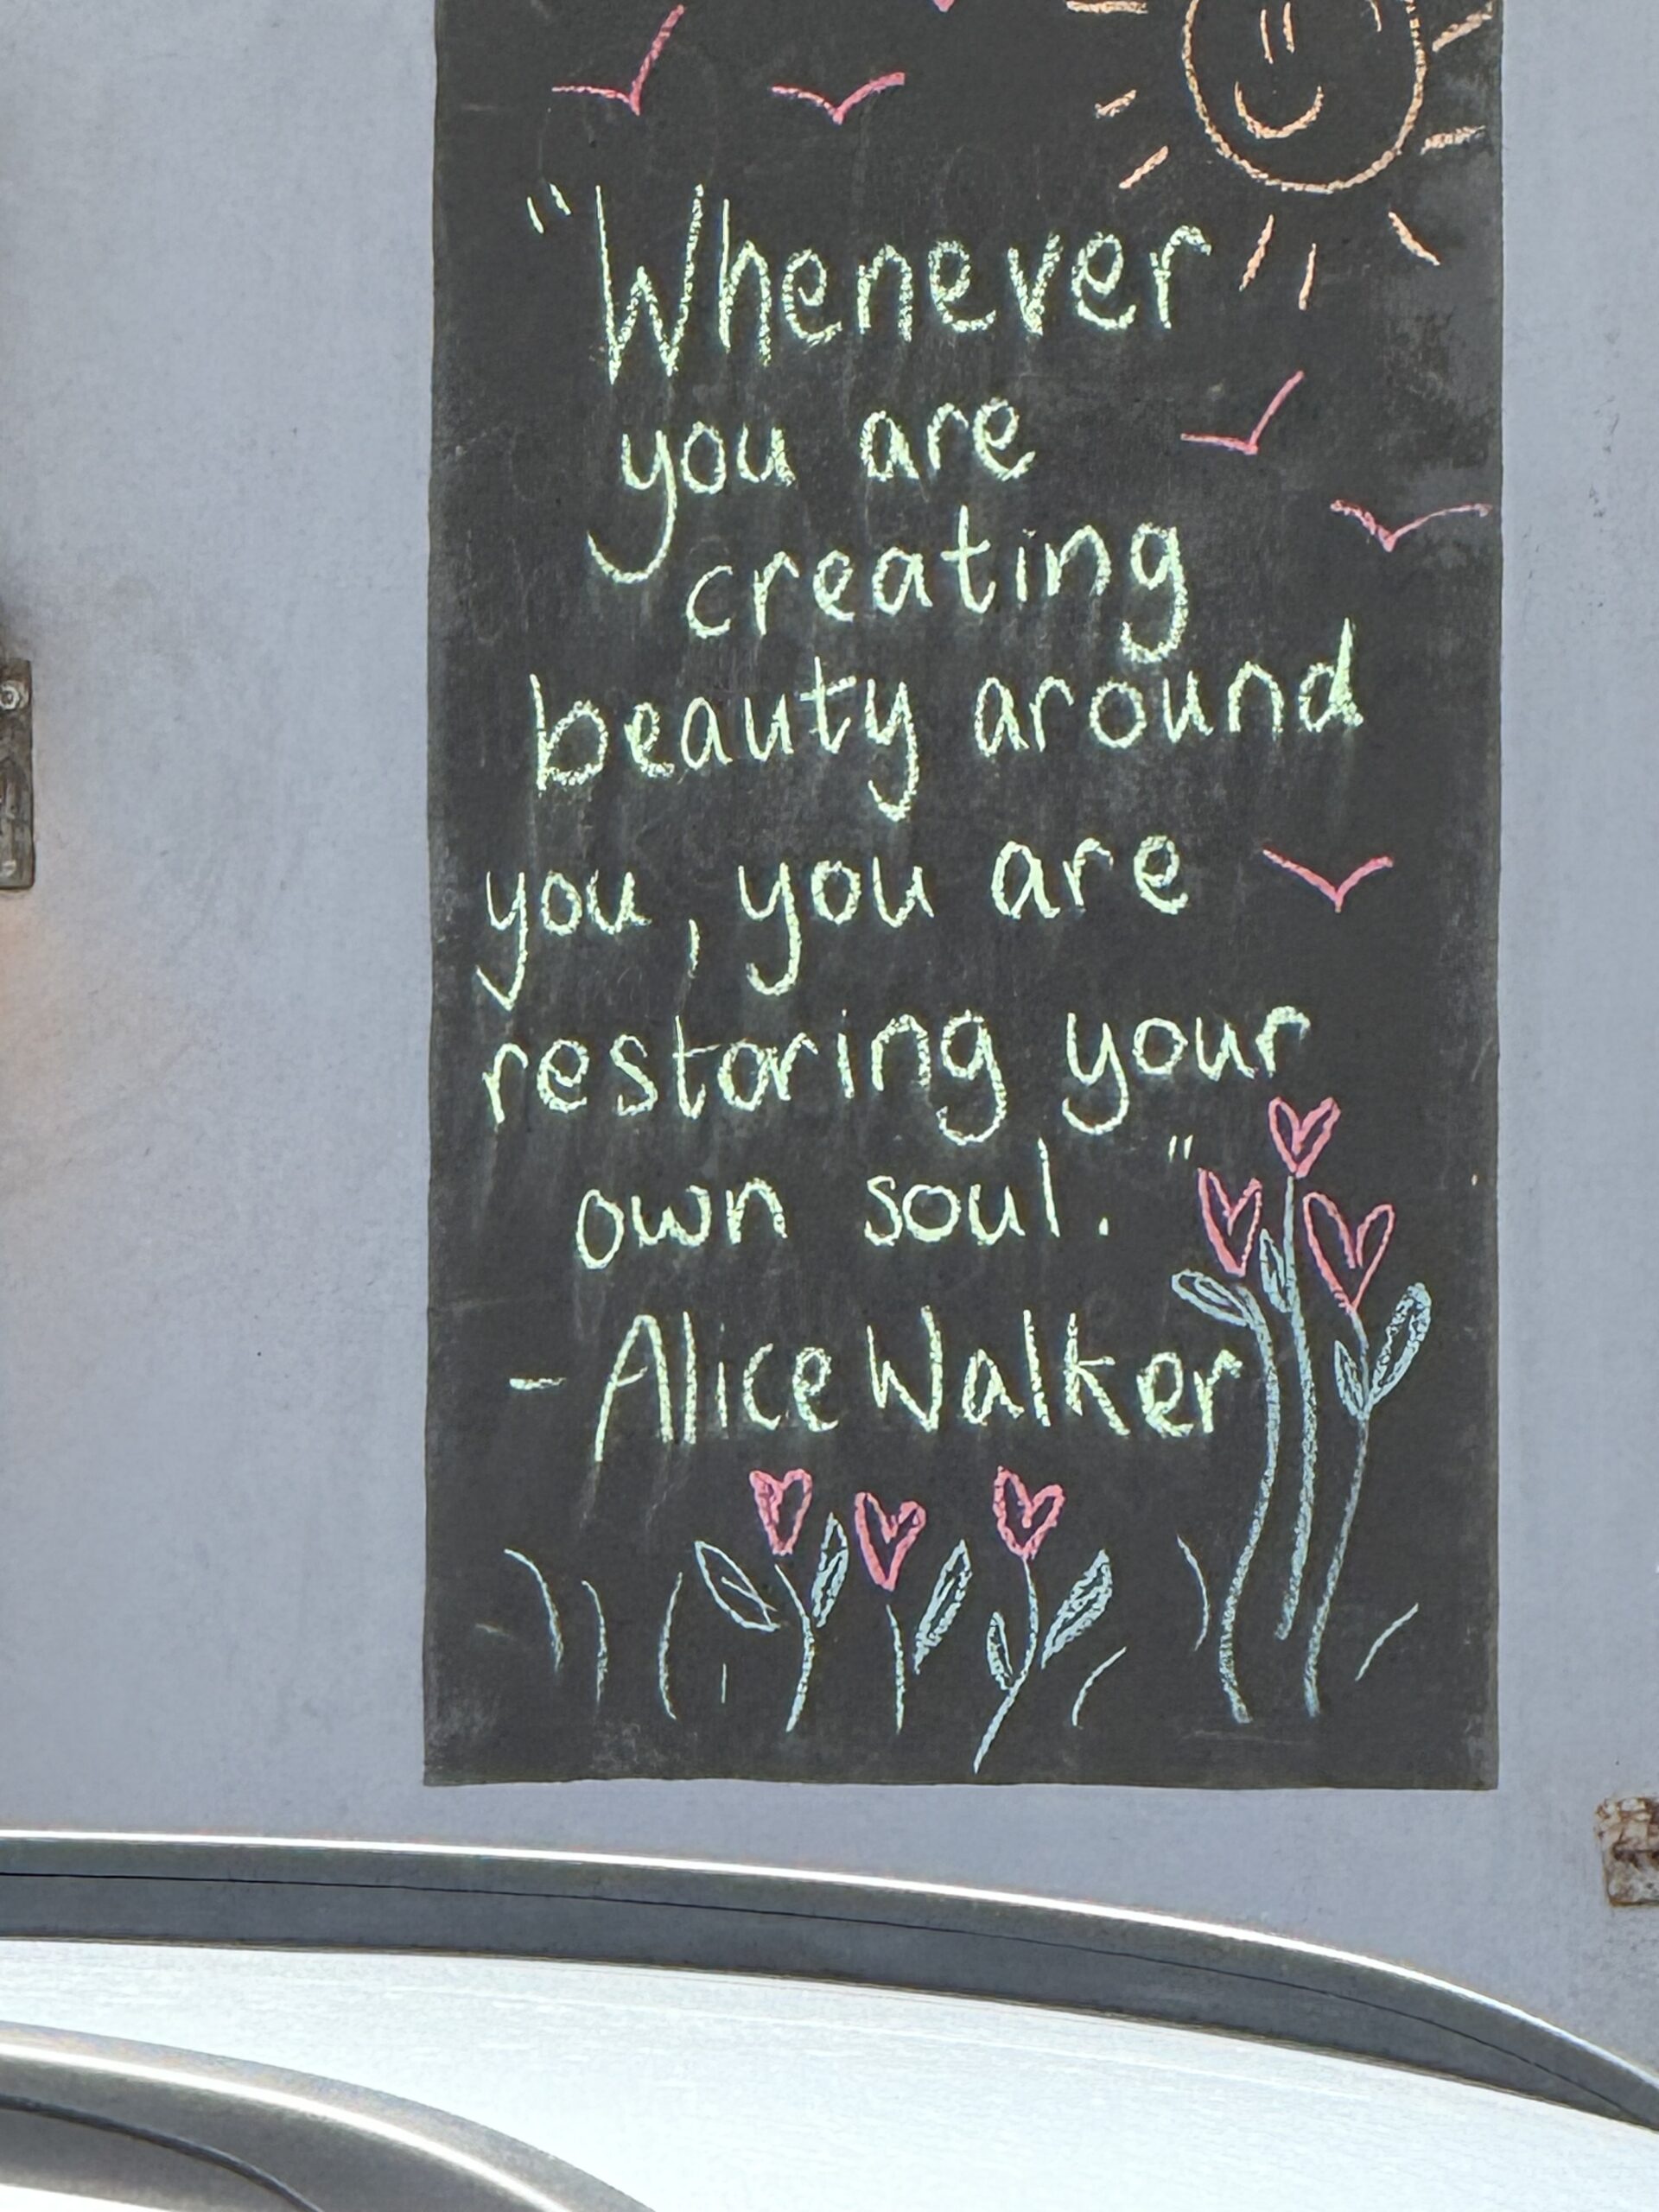 "Whenever
you are
creating
beauty around
you, you are
restoring your
own soul."
- Alice Walker